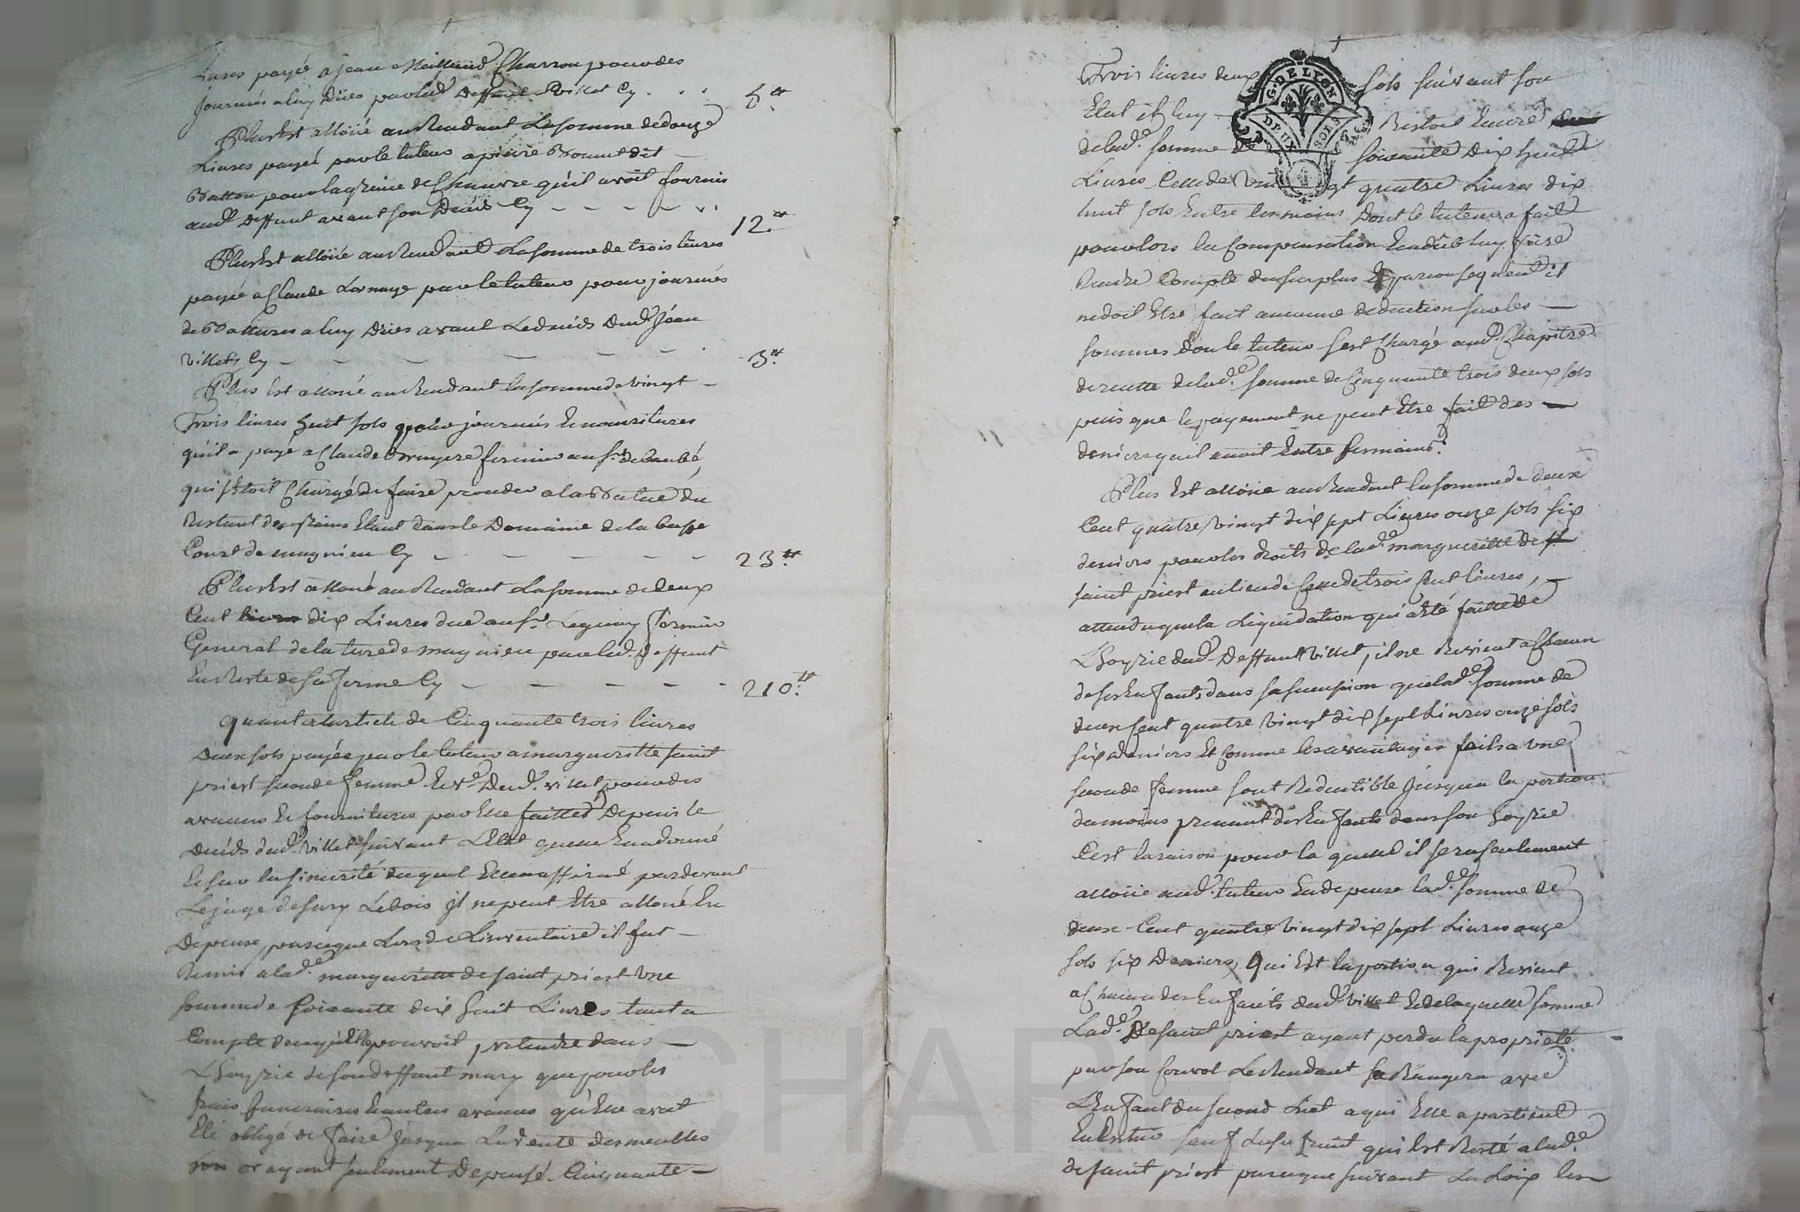 Livres payé a jean Maillard Charron pour des
journés a luy Dües par led. Deffunt Villet Cy . . . 5.tt
Plus Est alloüé au Rendant La somme de douze
Livres payée par le tuteur a pierre
pour la graine de Chanvre qu'il avoit fournie
aud. Deffunt avant son Decés Cy - - - - - 12.tt
Plus Est alloüé au Rendant La somme de trois livres
payée a Claude par le tuteur pour journées
de Battures a luy Dües avant Le decés Dud. Jean
Villet Cy - - - - - - 3.tt
Plus est alloué au Rendant la somme de vingt -
Trois livres huit sols pour journées et nourritures
qu'il a payé a Claude Bruyere fermier
qui s'Etoit Chargé de faire proceder a la Bature du
Restant des grains Etant dans le Domaine de la basse
Court de magnieu Cy - - - - - 23.tt
Plus Est alloué au Rendant La somme de deux
Cent dix Livres due au sr. Leguay fermier
General de la terre de magnieu par led. deffunt
En Reste de sa ferme Cy - - - - - 210.tt
quant a l'article de Cinquante trois livres
Deux sols payée par le tuteur a margueritte saint
priest seconde femme Et ve. Dud. villet pour des
avances Et fournitures par Elle faittes Depuis le
Decés dud. Villet suivant L'Etat quelle En a donné
Et sur la sincerité duquel Elle a affirmé pardevant
Le juge de sury Lebois il ne peut Etre alloué En
Depense, parceque Lors de L'inventaire il fut -
Remis a lad.e marguerette de saint priest Une
somme de soixante dix huit Livres tant a
Compte de ce qu'elle pouvoit pretendre dans -
L'hoyrie de son deffunt mary que pour les
frais funeraires Et autres avances qu'Elle avoit
Eté obligé de faire jusqua La vente des meubles
or ayant seulement Depensé Cinquante -
Trois livres deux sols suivant son
Etat il luy Restoit Encore
de lad.e somme de soixante Dix huit
Livres Celle de vingt quatre Livres dix
huit sols Entre les mains Dont le tuteur a fait
pour lors la Compensation
Rendre Compte du surplus Et par consequent il
ne doit Etre fait aucune deduction sur les -
sommes dont le tuteur s'est Chargé aud. Chapitre
de recette de lad.e somme de Cinquante trois deux sols
puis que le payement ne peut Etre fait des -
deniers qu'il avoit Entre ses mains.
Plus Est alloüe au Rendant la somme de deux
Cent quatre vingt dix sept Livres onze sols six
deniers pour les droits de lad.e marguerite de
saint priest au lieu de Celle de trois Cent livres,
attendu que la Liquidation qui a été faitte de
L'hoyrie dud. Deffunt Villet, il ne Revient a Chacun
de ses Enfants dans sa succession que lad.e somme de
deux Cent quatre vingt dix sept Livres onze sols
six deniers Et Comme les avantages faits a une
seconde femme sont Reductible jusqua la portion
du moins prenant des Enfants dans son hoyrie
C'est la raison pour la quelle il sera seulement
alloüé aud. tuteur En depense lad.e somme de
deux Cent quatre vingt dix sept Livres onze
sols six Deniers, qui Est la portion qui Revient
a Chacun des Enfants dud. Villet Et de laquelle somme
Lad.e De saint priest ayant perdu la proprieté -
par son Convol Le Rendant se Rangera avec
L'Enfant du second Liet a qui Elle appartient
sauf L'usufruit qui Est Resté a lad.e
de saint priest parceque suivant La loix les
G. DE LYON
DEUX SOLS